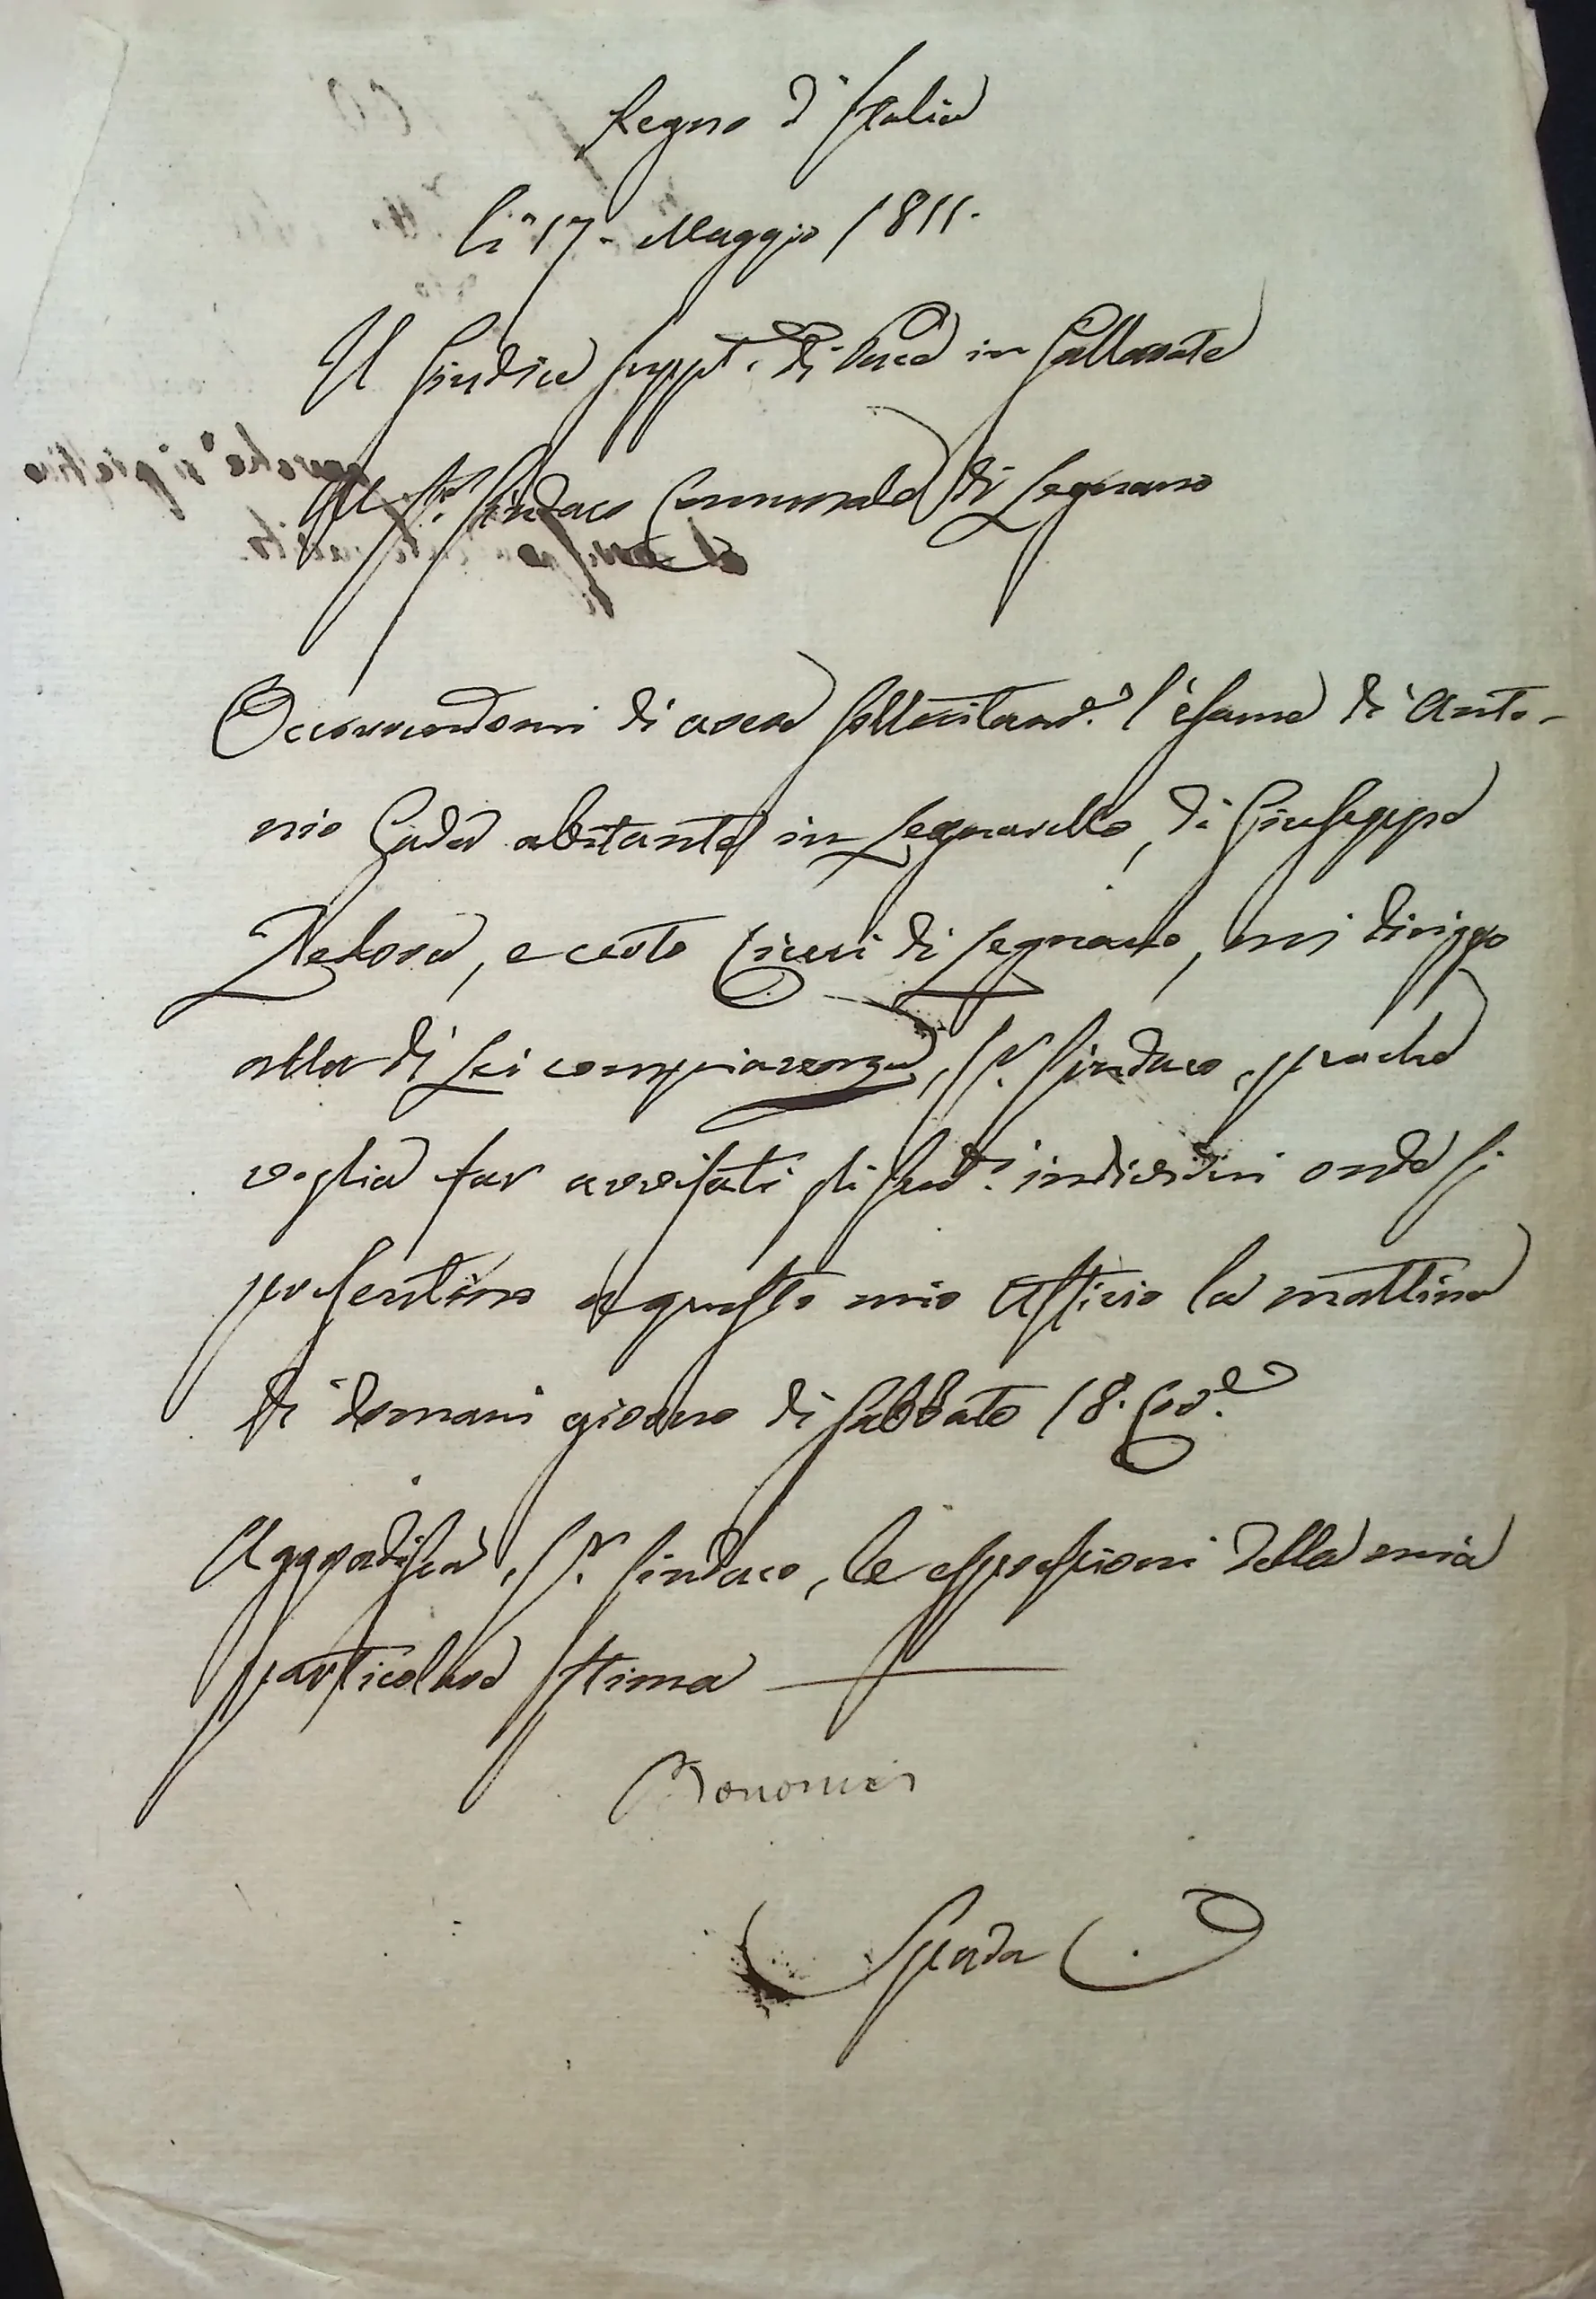 Regno d'Italia
li 17. Maggio 1811.
Il Giudice Suppt.e di Pace in Gallarate
Al Sr. Sindaco Communale di Legnano
Occorrendomi di avere sollecitamte. l'esame di Anto-
nio Gadda abitante in Legnarello, di Giuseppe
e certo Ciceri di Legnano, mi dirigo
alla di Lei compiacenza, Sr. Sindaco, perche
voglia far avvisati gli sudti. individui onde si
presentino a questo mio Officio la mattina
di domani giorno di Sabbato 18. Corre.
Aggradisca, Sr. Sindaco, le espressioni della mia
particolare stima
Bonomi
Spada